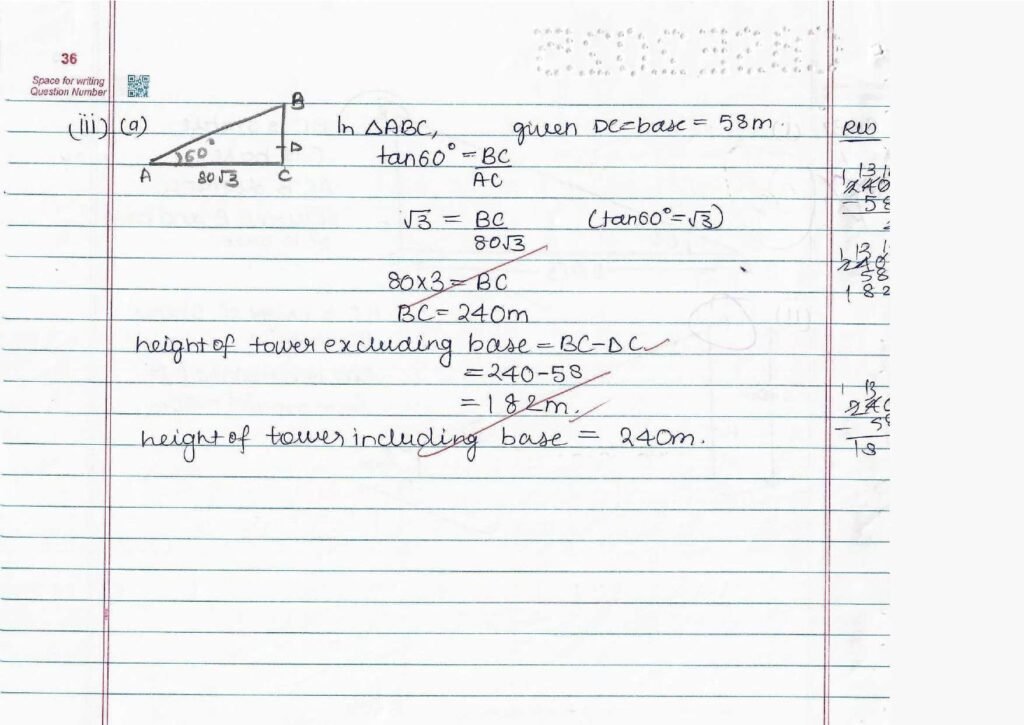 36
Space for writing
Question Number
(iii) (a)
B
60°
D
A
80√3
C
In △ABC, given DC=base = 58m.
tan60° = BC
AC
√3 = BC (tan60°=√3)
80√3
80×3 = BC
BC = 240m
height of tower excluding base = BC-DC
= 240-58
= 182m.
height of tower including base = 240m.
RW
240
58
240
58
182
240
- 58
18